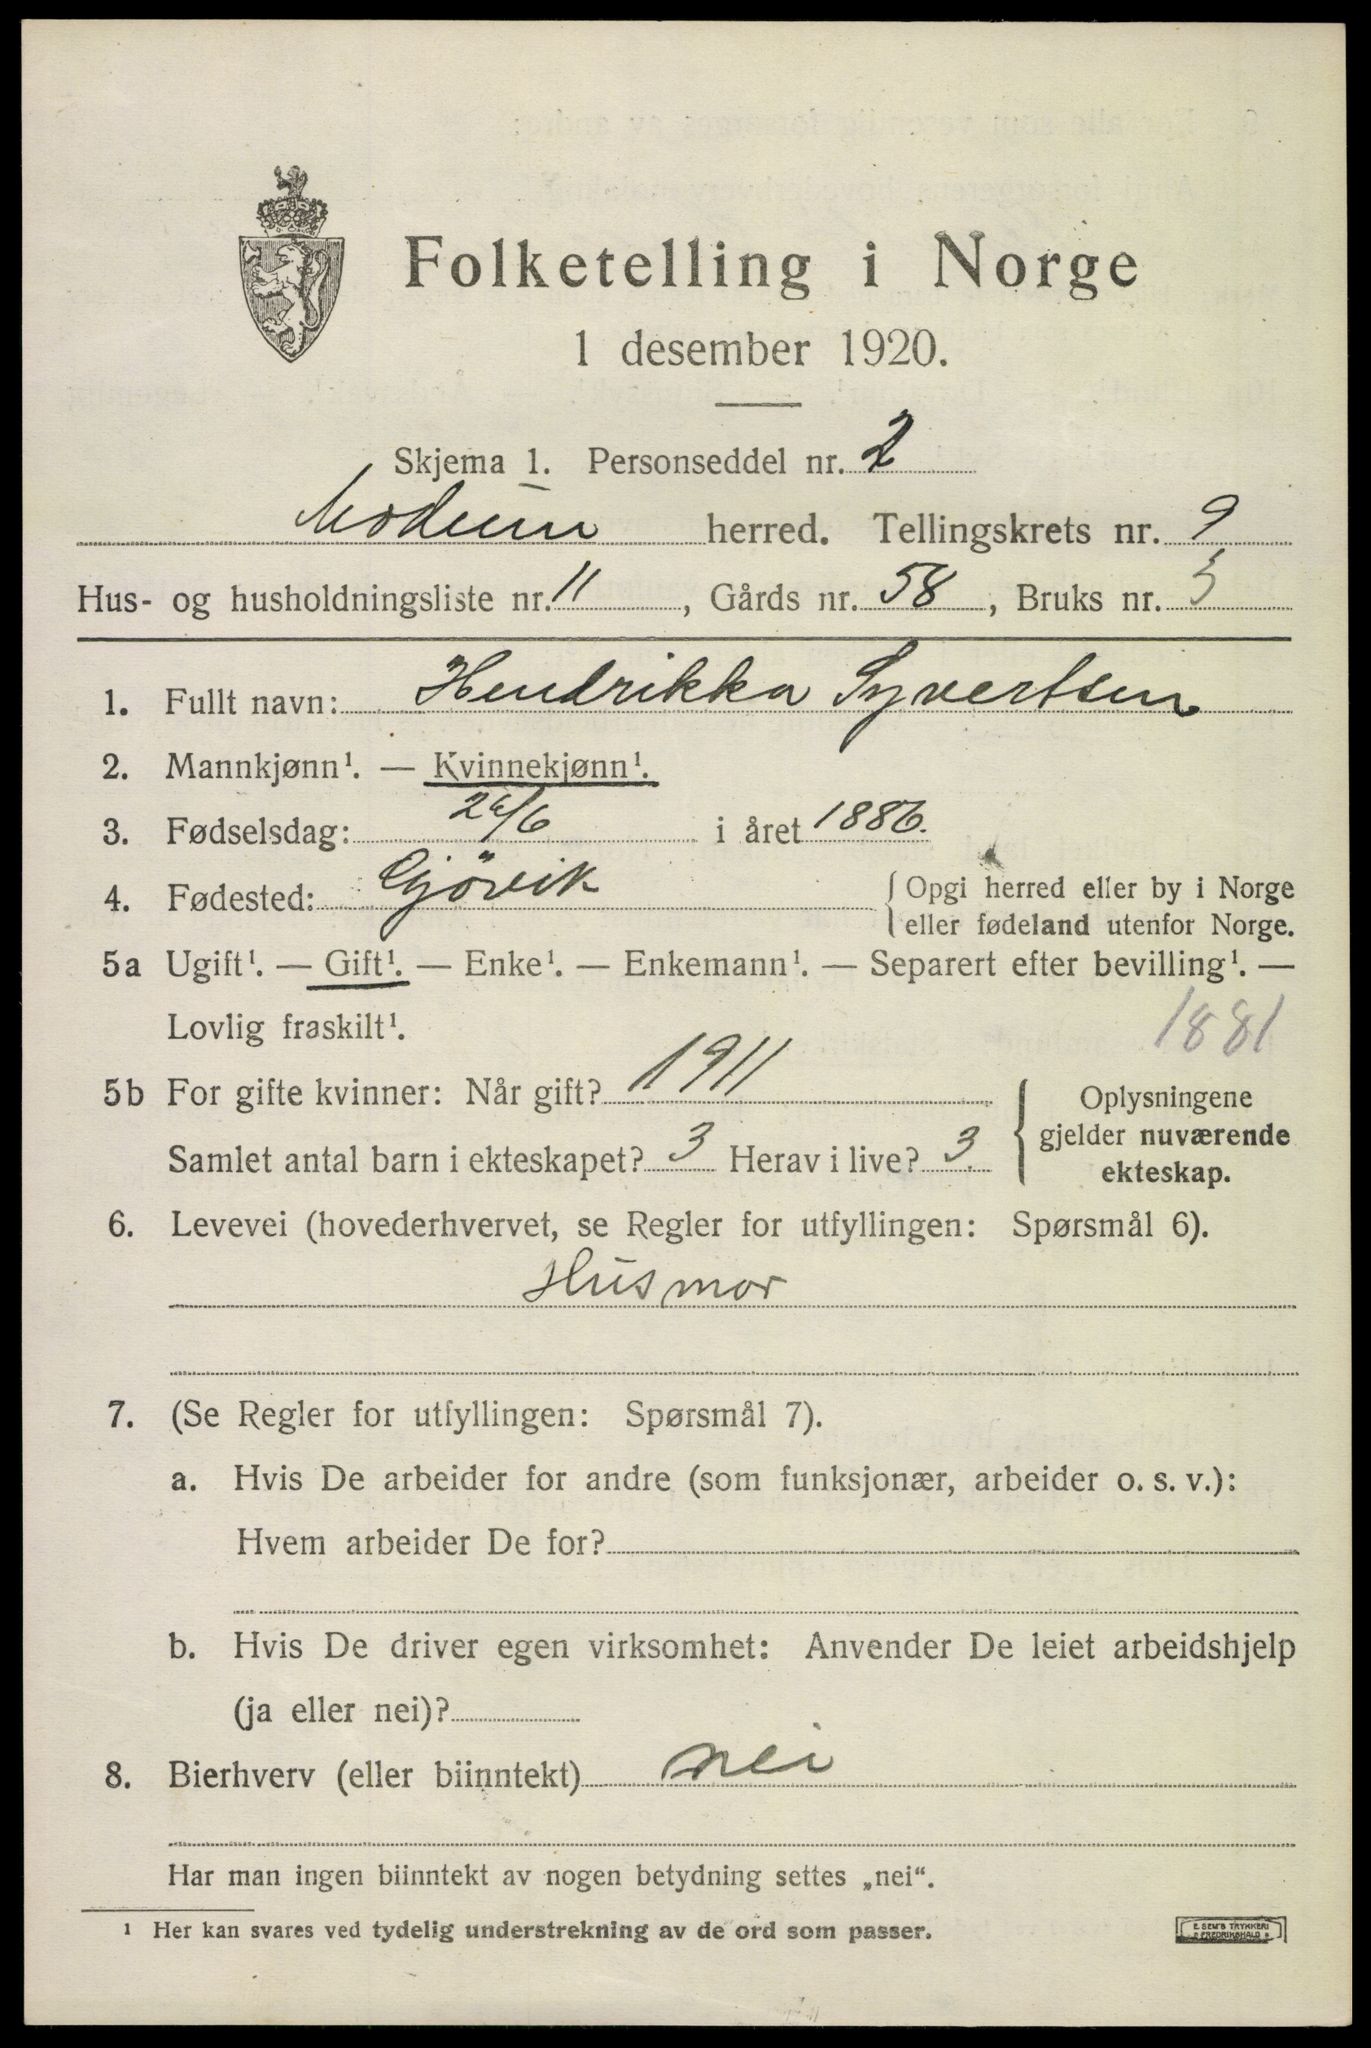 Folketelling i Norge
1 desember 1920.
Skjema 1. Personseddel nr. 2
Modum herred. Tellingskrets nr. 9
Hus- og husholdningsliste nr. 11, Gårds nr. 58, Bruks nr. 5
1. Fullt navn: Hendrikka Syvertsen
2. Mannkjønn¹. — Kvinnekjønn¹.
3. Fødselsdag: 26/6 i året 1886.
4. Fødested: Gjövik {Opgi herred eller by i Norge
eller fødeland utenfor Norge.
5a Ugift¹. — Gift¹. — Enke¹. — Enkemann¹. — Separert efter bevilling¹. —
Lovlig fraskilt¹. 1881
5b For gifte kvinner: Når gift? 1911 { Oplysningene
gjelder nuværende
Samlet antal barn i ekteskapet? 3 Herav i live? 3.
ekteskap.
6. Levevei (hovederhvervet, se Regler for utfyllingen: Spørsmål 6).
Husmor
7. (Se Regler for utfyllingen: Spørsmål 7).
a. Hvis De arbeider for andre (som funksjonær, arbeider o. s. v.):
Hvem arbeider De for?
b. Hvis De driver egen virksomhet: Anvender De leiet arbeidshjelp
(ja eller nei)?
8. Bierhverv (eller biinntekt) nei
Har man ingen biinntekt av nogen betydning settes „nei“.
¹ Her kan svares ved tydelig understrekning av de ord som passer.
E. SEM'S TRYKKERI
FREDRIKSHALD